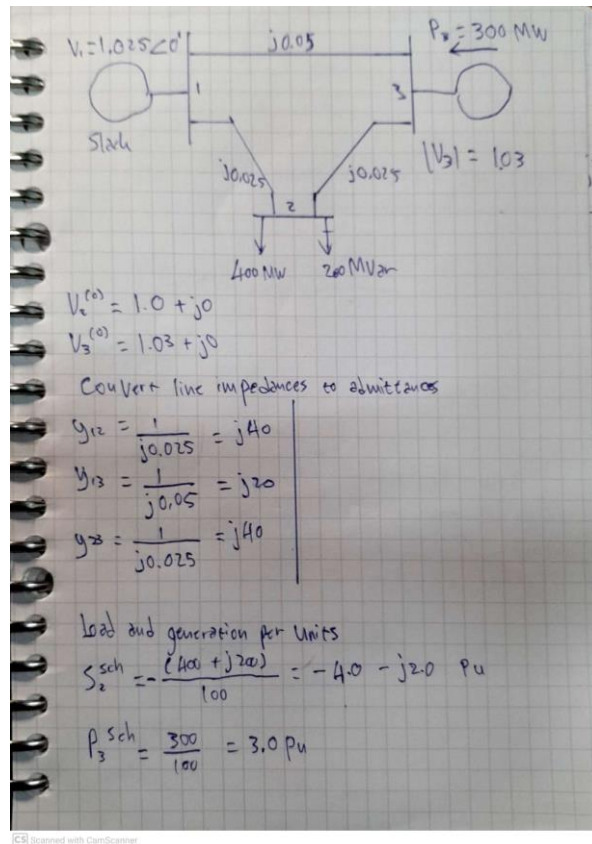 V₁ = 1.025∠0°
j0.05
P₃ = 300 MW
1
3
Slack
|V₃| = 1.03
j0.025
j0.025
2
400 MW
200 MVar
V₂⁽⁰⁾ = 1.0 + j0
V₃⁽⁰⁾ = 1.03 + j0
Convert line impedances to admittances
y₁₂ = 1/j0.025 = j40
y₁₃ = 1/j0,05 = j20
y₂₃ = 1/j0.025 = j40
Load and generation per Units
S₂ˢᶜʰ = -(400 + j200)/100 = -4.0 - j2.0 Pu
P₃ˢᶜʰ = 300/100 = 3.0 Pu
CS Scanned with CamScanner